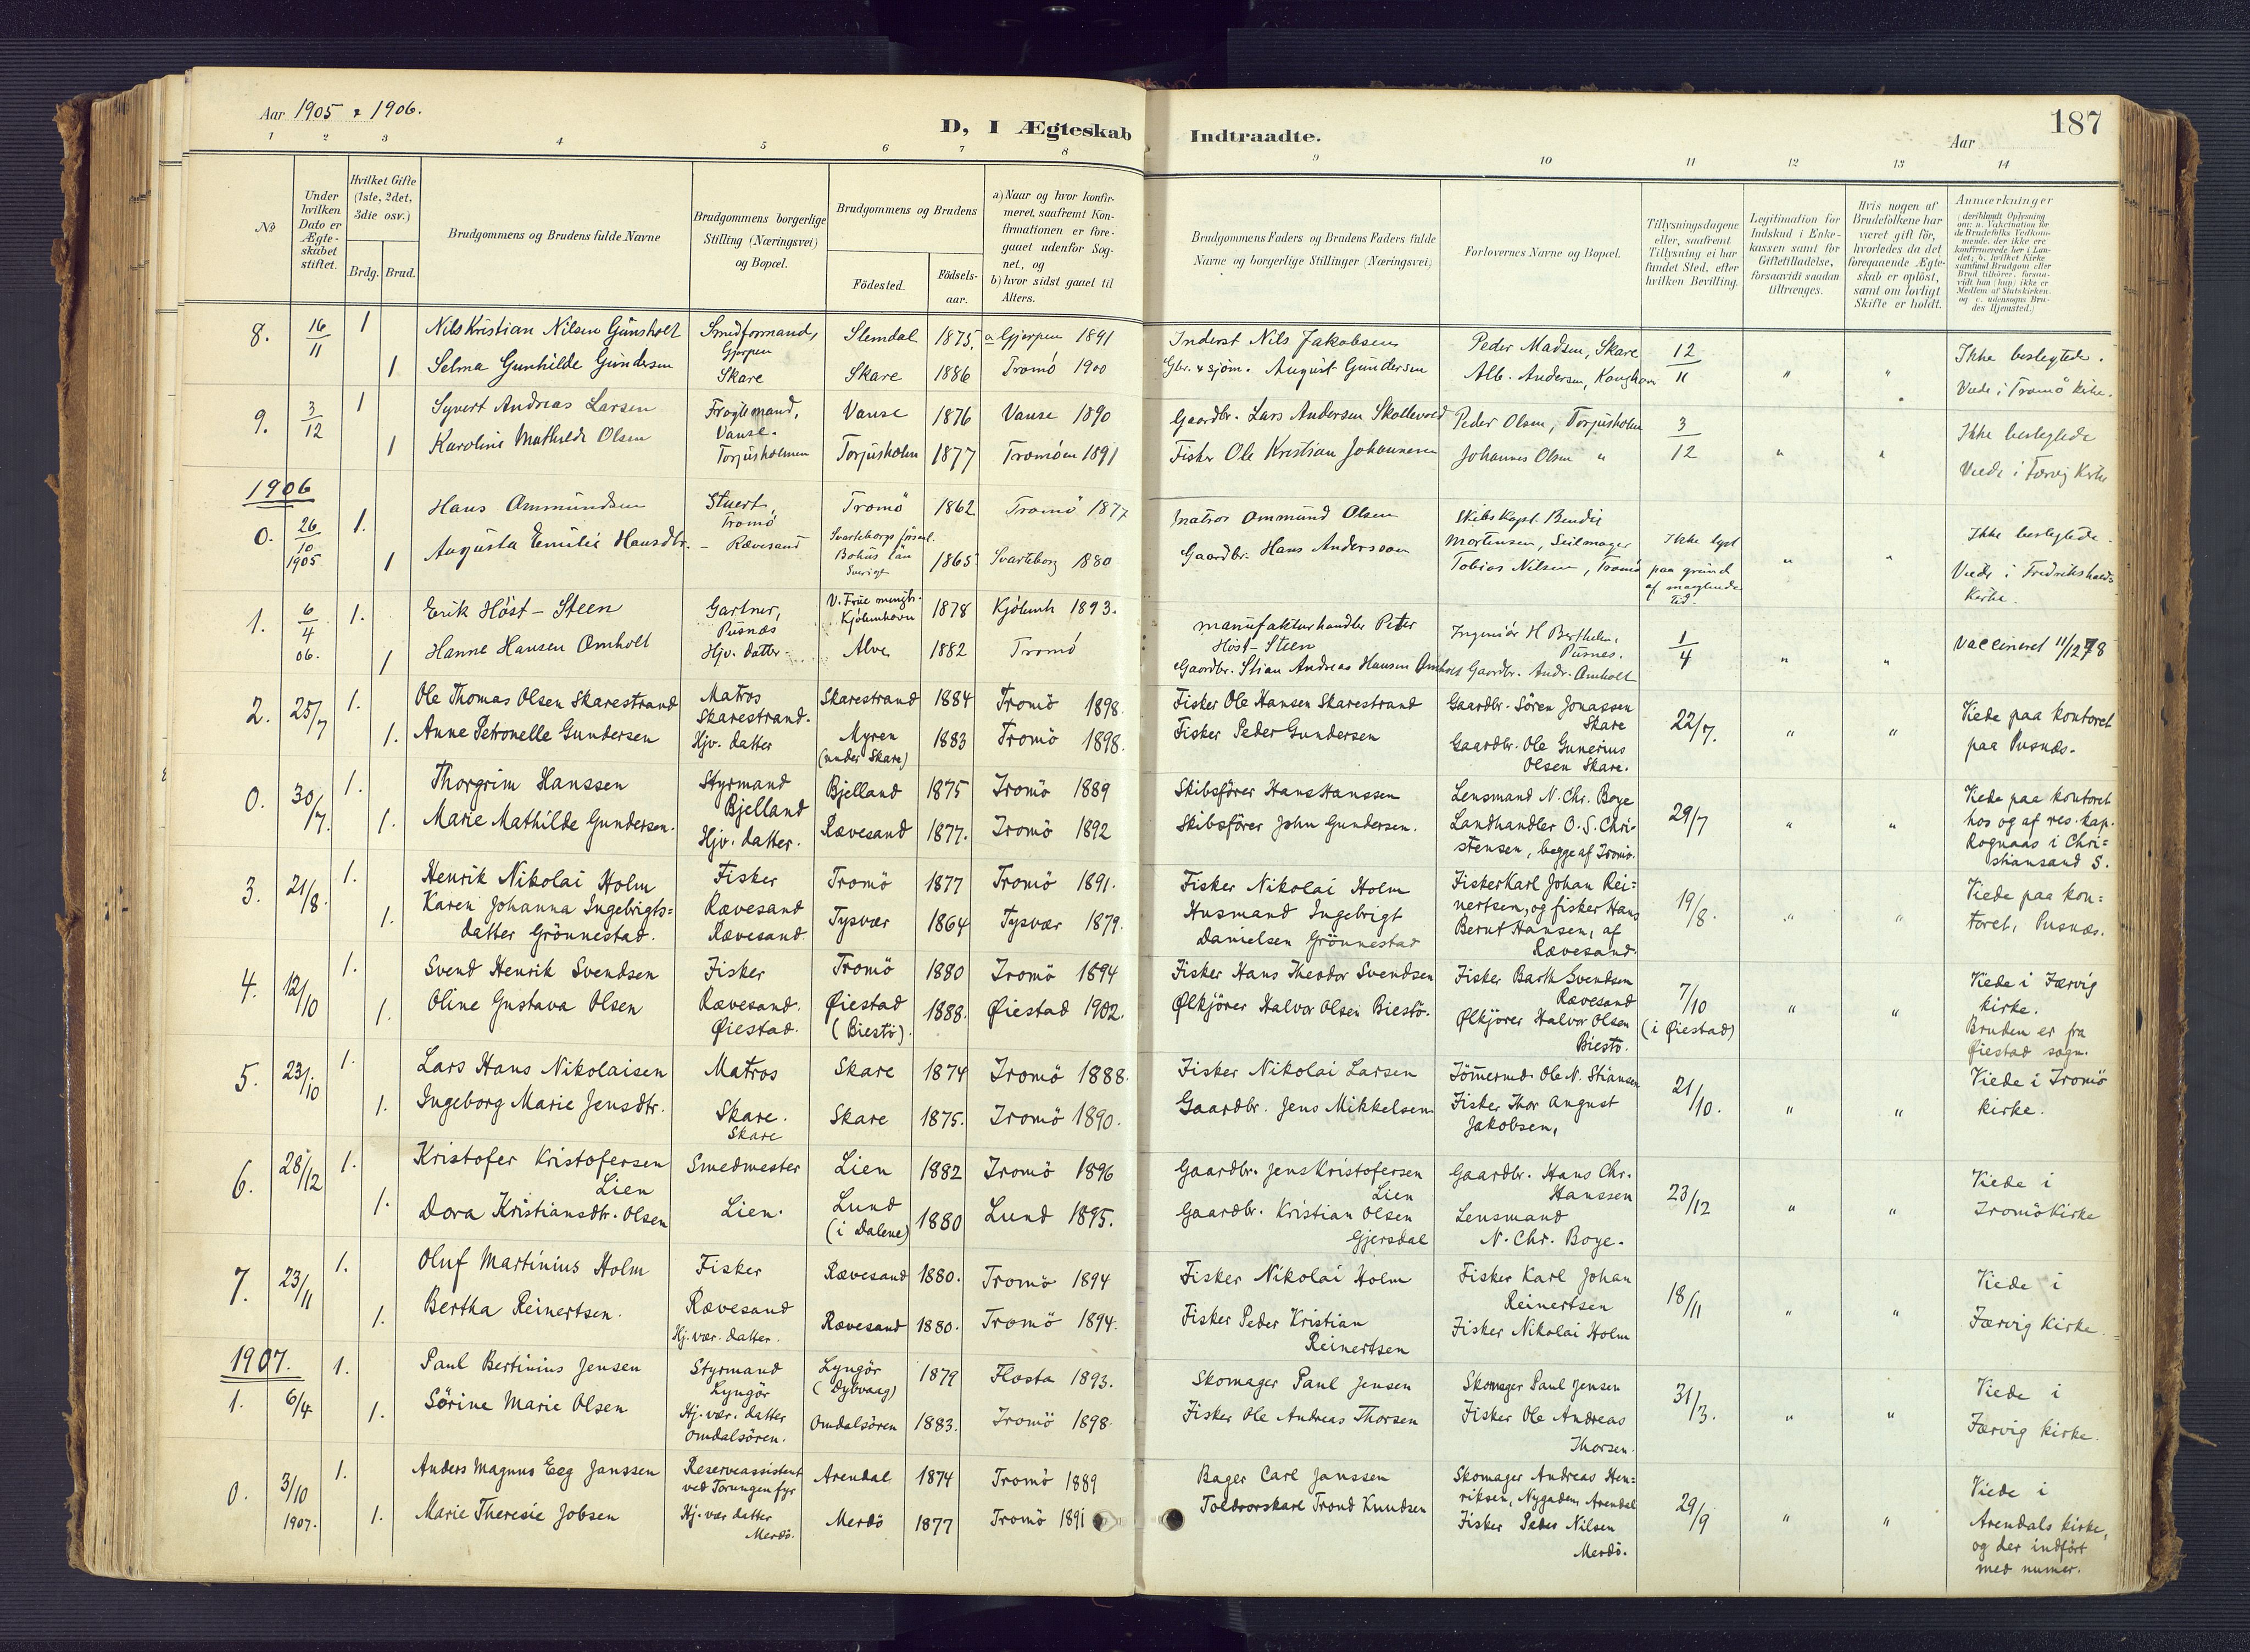 Aar 1905 & 1906.
D, I Ægteskab Indtraadte.
Aar
187
1 2 3 4 5 6 7 8 9 10 11 12 13 14
No
Under hvilken Dato er Ægteskabet stiftet.
Hvilket Gifte (1ste, 2det, 3die osv.)
Brdg. Brud.
Brudgommens og Brudens fulde Navne
Brudgommens borgerlige Stilling (Næringsvei) og Bopæl.
Brudgommens og Brudens
Fødested.
Fødselsaar.
a) Naar og hvor konfirmeret, saafremt Konfirmationen er foregaaet udenfor Sognet, og
b) hvor sidst gaaet til Alters.
Brudgommens Faders og Brudens Faders fulde Navne og borgerlige Stillinger (Næringsvei)
Forlovernes Navne og Bopæl.
Tillysningsdagene eller, saafremt Tillysning ei har fundet Sted, efter hvilken Bevilling.
Legitimation for Indskud i Enkekassen samt for Giftetilladelse, forsaavidt saadan tiltrænges.
Hvis nogen af Brudefolkene har været gift før, hvorledes da det foregaaende Ægteskab er opløst, samt om lovligt Skifte er holdt.
Anmærkninger
8. 16/11 1 Nils Kristian Nilsen Gunsholt Smedformand, Gjerpen Slemdal 1875. a Gjerpen 1891 Inderst Nils Jakobsen Peder Madsen, Skare 12/11 " " Ikke beslegtede.
1 Selma Gunhilde Gundersen Skare Skare 1886 Tromö 1900 Gbr. & sjøm. August Gundersen Alb. Andersen, Viede i Tromö kirke.
9. 3/12 1 Syvert Andreas Larsen Vanse. Vanse 1876 Vanse 1890 Gaardbr. Lars Andersen Skollevold Peder Olsen, Torjusholm 3/12 " " Ikke beslegtede
1 Karoline Mathilde Olsen Torjusholmen Torjusholm 1877 Tromöen 1891 Fisker Ole Kristian Johannesen Johannes Olsen " Viede i Færvig Kirke
1906
0. 26/10 1905 1. Hans Ommundsen Stuert, Tromö Tromö 1862 Tromö 1877 Matros Ommund Olsen Skibskapt. Bendix Mortensen, Seilmager Ikke lyst Ikke beslegtede.
1 Augusta Emilie Hansdtr. - Rævesand Svarteborgs församl. Bohus län Sverige 1865 Svarteborg 1880 Gaardbr. Hans Andersson Tobias Nilsen, Tromö paa grund af manglende tid. " " Viede i Fredrikshalds Kirke.
1. 6/4 06. 1. Erik Höst-Steen Gartner, Pusnæs V. Frue menigh. Kjöbenhavn 1878 Kjöbenh 1893. Manufakturhandler Peter Höst-Steen Ingeniör H Bertheln. Pusnes. 1/4 " " Vaccineret 11/12 78
1 Hanne Hansen Omholt Hjv. datter Alve 1882 Tromö Gaardbr. Stian Andreas Hansen Omholt Gaardbr. Andr. Omholt
2. 25/7 1. Ole Thomas Olsen Skarestrand Matros Skarestrand. Skarestrand 1884 Tromö 1898. Fisker Ole Hansen Skarestrand Gaardbr. Sören Jonassen Skare 22/7. " " Viede paa kontoret
1. Anne Petronelle Gundersen Hjv. datter Myren (under Skare) 1883 Tromö 1898. Fisker Peder Gundersen Gaardbr. Ole Gunerius Olsen Skare. paa Pusnæs.
0. 30/7. 1. Thorgrim Hanssen Styrmand Bjelland Bjelland 1875 Tromö 1889 Skibsförer Hans Hanssen Lensmand N. Chr. Boye 29/7 " " Viede paa kontoret hos og af res. kap. Rognaas i Christiansand S.
1. Marie Mathilde Gundersen. Hjv. datter. Rævesand 1877. Tromö 1892 Skibsförer John Gundersen. Landhandler O. S. Christensen, begge af Tromö.
3. 21/8. 1. Henrik Nikolai Holm Fisker Rævesand Tromö 1877 Tromö 1891. Fisker Nikolai Holm Fisker Karl Johan Reinertsen, og fisker Hans Bernt Hansen, af Rævesand. 19/8. " " Viede paa kontoret, Pusnæs.
1. Karen Johanna Ingebrigtsdatter Grönnestad. Rævesand. Tysvær 1864 Tysvær 1879. Husmand Ingebrigt Danielsen Grönnestad
4. 12/10 1. Svend Henrik Svendsen Fisker Rævesand. Tromö 1880 Tromö 1894 Fisker Hans Theodor Svendsen Fisker Barth Svendsen Rævesand 7/10 (i Øiestad) " " Viede i Færvig kirke. Bruden er fra Øiestad sogn.
1. Oline Gustava Olsen Øiestad. Øiestad (Biestö). 1888. Øiestad 1902. Ølkjörer Halvor Olsen Biestö. Ølkjörer Halvor Olsen Biestö.
5. 23/10 1. Lars Hans Nikolaisen Matros Skare. Skare 1874 Tromö 1888. Fisker Nikolai Larsen Tömermd. Ole N. Stiansen 21/10. " " Viede i Tromö kirke.
1. Ingeborg Marie Jensdtr. Skare Skare 1875. Tromö 1890. Gaardbr. Jens Mikkelsen Fisker Thor August Jakobsen,
6. 28/12 1. Kristofer Kristofersen Lien Smedmester Lien. Lien 1882 Tromö 1896 Gaardbr. Jens Kristofersen Lien Gaardbr. Hans Chr. Hanssen 23/12 " " Viede i Tromö Kirke
1. Dora Kristiansdtr. Olsen Lund (i Dalene) 1880 Lund 1895. Gaardbr. Kristian Olsen Gjersdal Lensmand N. Chr. Boye.
7. 23/11 1. Oluf Martinius Holm Fisker Rævesand Rævesand 1880. Tromö 1894 Fisker Nikolai Holm Fisker Karl Johan Reinertsen 18/11 " " Viede i Færvig Kirke.
1. Bertha Reinertsen. Hj. vær. datter. Rævesand 1880. Tromö 1894. Fisker Peder Kristian Reinertsen Fisker Nikolai Holm
1907.
1. 6/4 1. Paul Bertinius Jensen Styrmand Lyngör Lyngör (Dybvaag) 1879 Flosta 1893. Skomager Paul Jensen Skomager Paul Jensen 31/3. " " Viede i Færvig kirke.
1. Sörine Marie Olsen Hj. vær. datter Omdalsören. Omdalsören 1883. Tromö 1898. Fisker Ole Andreas Thorsen Fisker Ole Andreas Thorsen.
0. 3/10 1907. 1. Anders Magnus Eeg Janssen Reserveassistent ved Torungen fyr Arendal 1874 Tromö 1889 Bager Carl Janssen Skomager Andreas Henriksen, Nygaden, Arendal 29/9 " " Viede i Arendals kirke, og der indført med numer.
1. Marie Theresie Jobsen Hj. vær datter Merdö. Merdö 1877 Tromö 1891 Toldrorskarl Trond Knudsen Fisker Peder Nilsen Merdö.